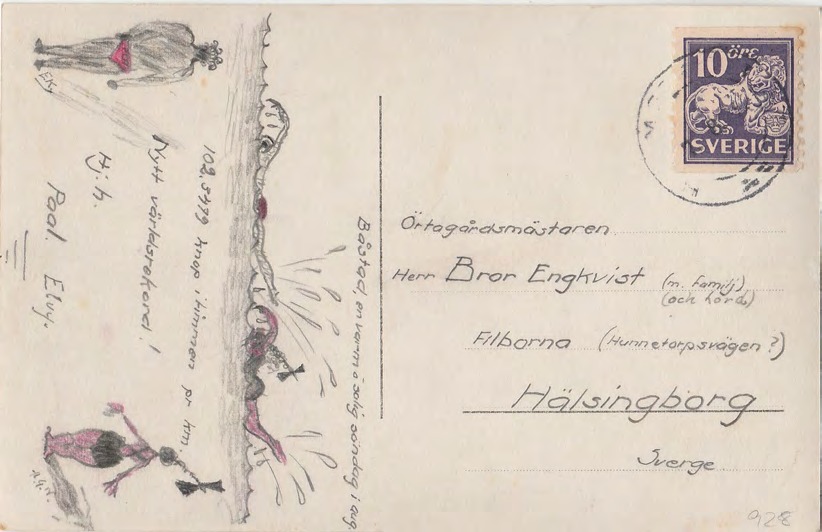 Båstad, en varm o solig söndag i aug.
102.5479 knop i timman pr km.
Nytt världsrekord!
Hj. h.
Paal. Elvy.
Elvy
10 öre
SVERIGE
Örtagårdsmästaren
Herr Bror Engkvist (m. familj)
(och hord.)
Filborna (Hunnetorpsvägen?)
Hälsingborg
Sverge
928